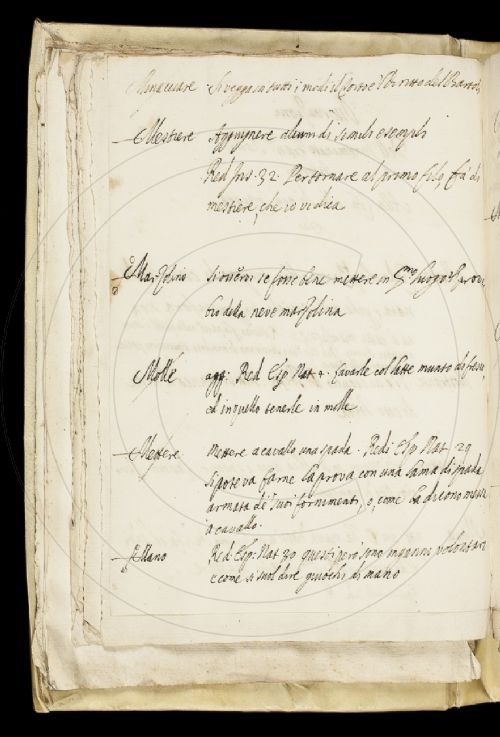 Minacciare Si vegga in tutti i modi il Torto e 'l Diritto del Bartoli
Mestiere Aggiugnere alcuni di simili esempli
Red Ins. 32 Per tornare al primo filo, fa di
mestiere, che io vi dica
Marzolino Si osservi se fosse bene mettere in q.to luogo il prover
bio della neve marzolina
Molle agg: Red Esp Nat 4. cavarle col latte munto di fresco
ed in quello tenerle in molle
Mettere Mettere a cavallo una spada. Red: Esp Nat 29
si poteva farne la prova con una lama di spada
armata de' suoi fornimenti, o, come dicono messa
a cavallo.
Mano Red: Esp: Nat 30 questi però sono inganni volontari
e come si suol dire giuochi di mano